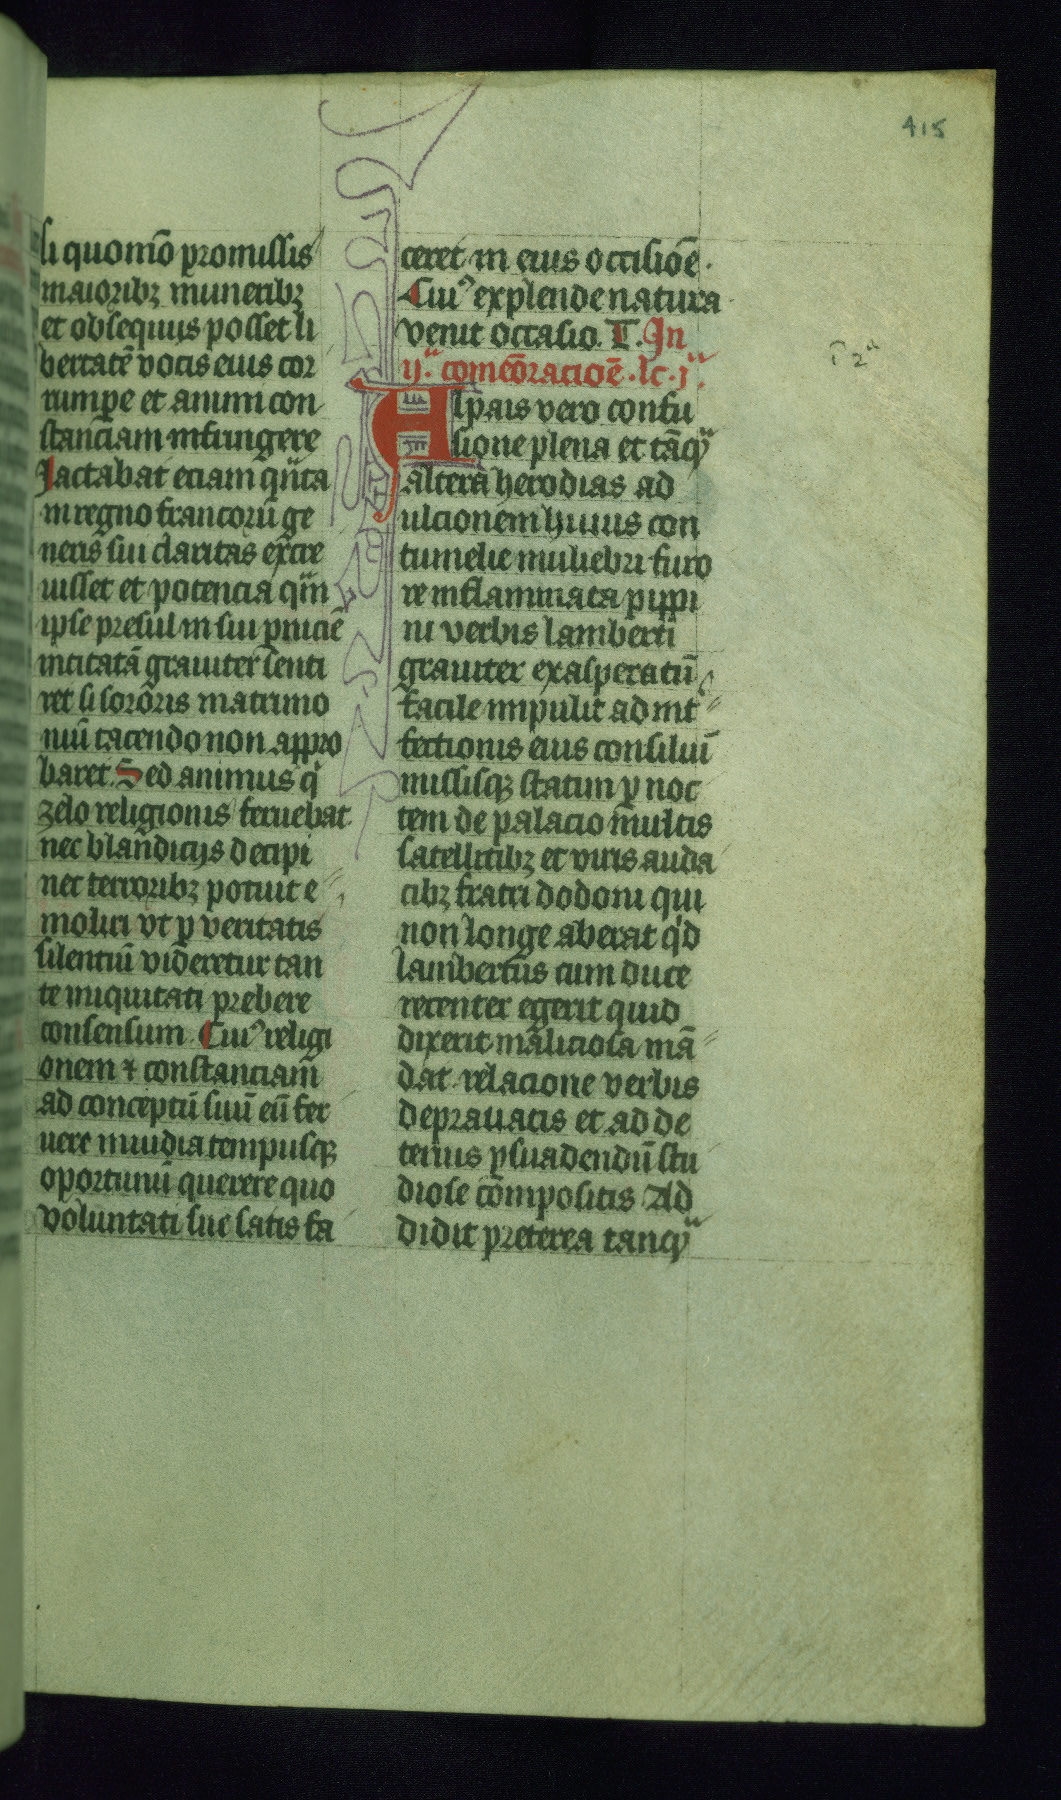 415
si quomō promissis
maioribꝫ muneribꝫ
et obsequiis posset li
bertatē vocis eius cor
rumꝑe et animi con
stanciam infringere
Jactabat eciam qñta
in regno francorū ge
neris sui claritas excre
uisset et potencia qm̄
ipse presul in sui ꝑniciē
incitatā grauiter senti
ret si sororis matrimo
niū tacendo non appro
baret. Sed animus qͥ
zelo religionis feruebat
nec blandicijs decipi
nec terroribꝫ potuit e
moliri vt ꝑ veritatis
silentiū videretur tan
te iniquitati prebere
consensum. Cuiꝰ religi
onem ⁊ constanciam
ad conceptū suū eū fer
uere inuidia tempusqꝫ
oportunū querere quo
voluntati sue satis fa
ceret in eius occisiōe.
Cuiꝰ explende natura
venit occasio. T. In
ijᵃ. comēoracioē .lc. jᵃ.
Alpais vero confu
sione plena et tāqͣ
altera herodias ad
ulcionem huius con
tumelie muliebri furo
re inflammata pippi
ni verbis lamberti
grauiter exasperatū
facile impulit ad int
fectionis eius consiliū
missisqꝫ statim ꝑ noc
tem de palacio multis
satellitibꝫ et viris auda
cibꝫ fratri dodoni qui
non longe aberat qͥd
lambertus cum duce
recenter egerit quid
dixerit maliciosa mā
dat relacione verbis
deprauatis et ad de
terius ꝑsuadendū stu
diose compositis Ad
didit preterea tanqͣ